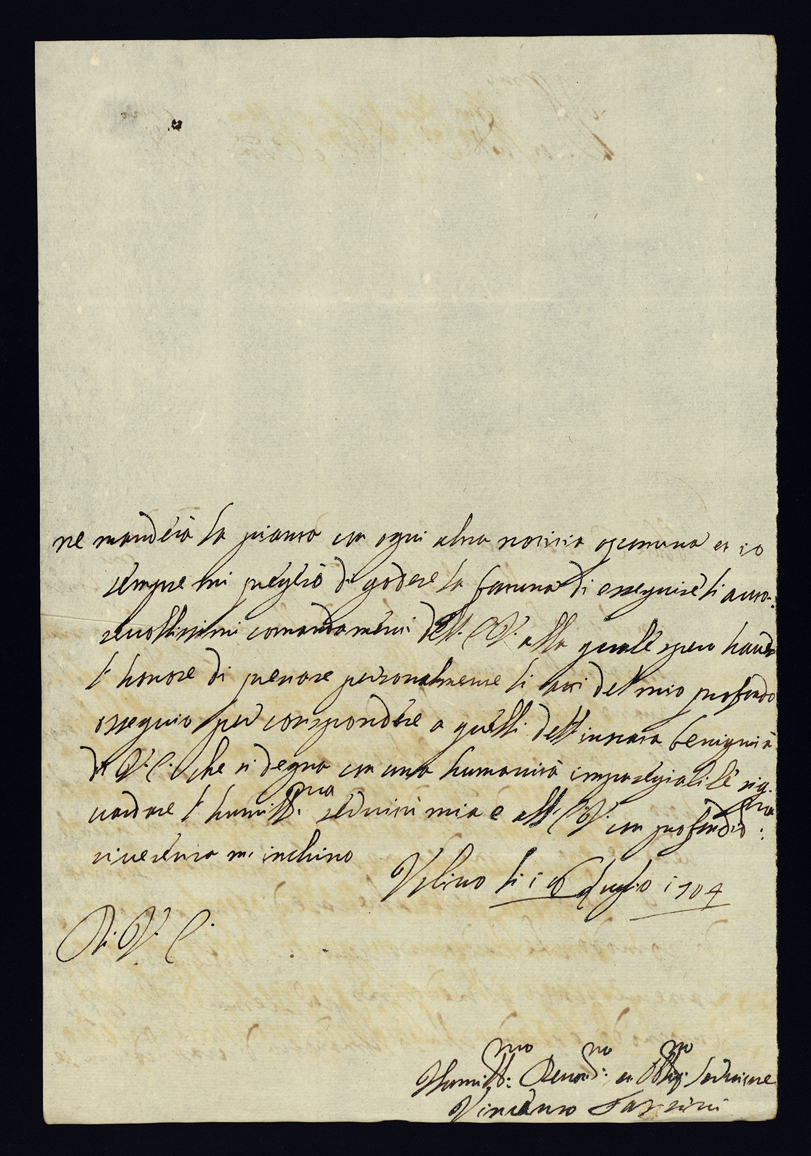 ne manderò la pianta con ogni altra notitia opportuna et io
sempre mi preggiò di godere la fortuna di esseguire li auto:
revolissimi comandamenti dell'E.V. alla quale spero haver
l'honore di prestare personalmente li atti del mio profondo
ossequio per corrispondere a quelli dell'innata benignità
di V.E. che si degna con una humanità impareggiabile rig:
uardare l'humill.ma servitù mia e all'E.V. con profond.ma
riverenza m'inchino
Urbino li 16 luglio 1704
Di V. E.
Humiliss:mo Devot:mo et Obblig:mo Servitore
Vincenzo